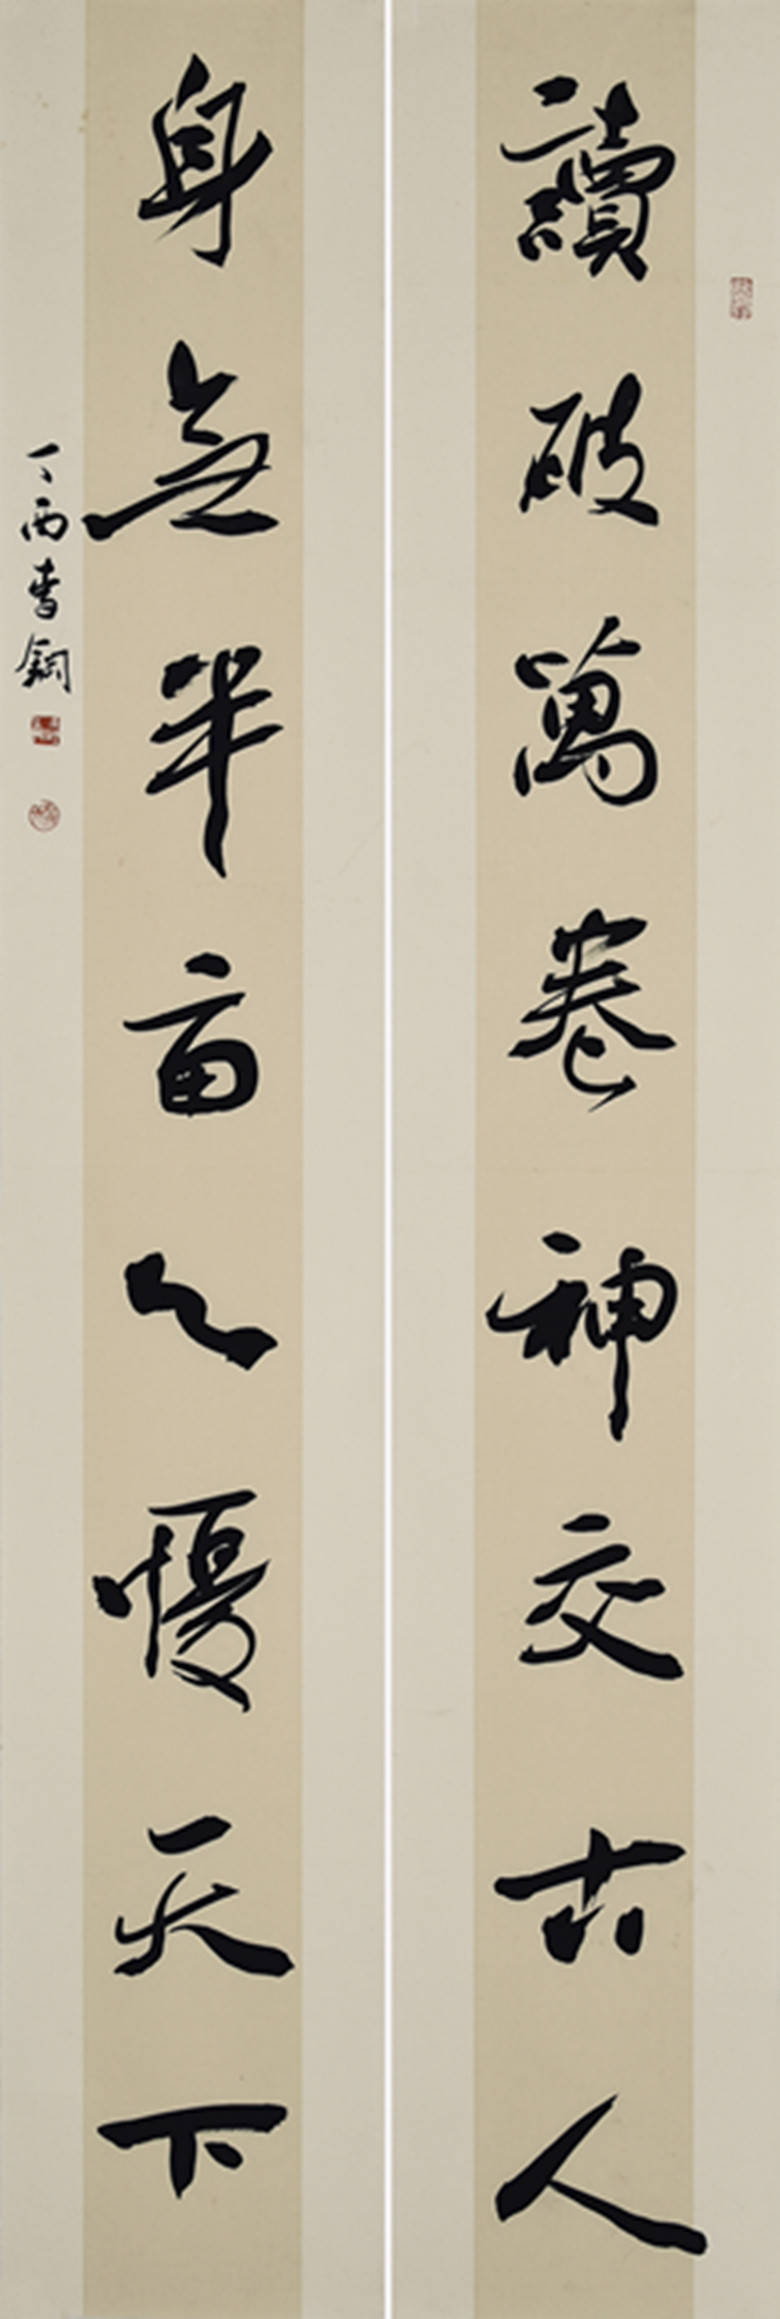 讀破萬卷神交古人
身無半亩心懮天下
丁酉